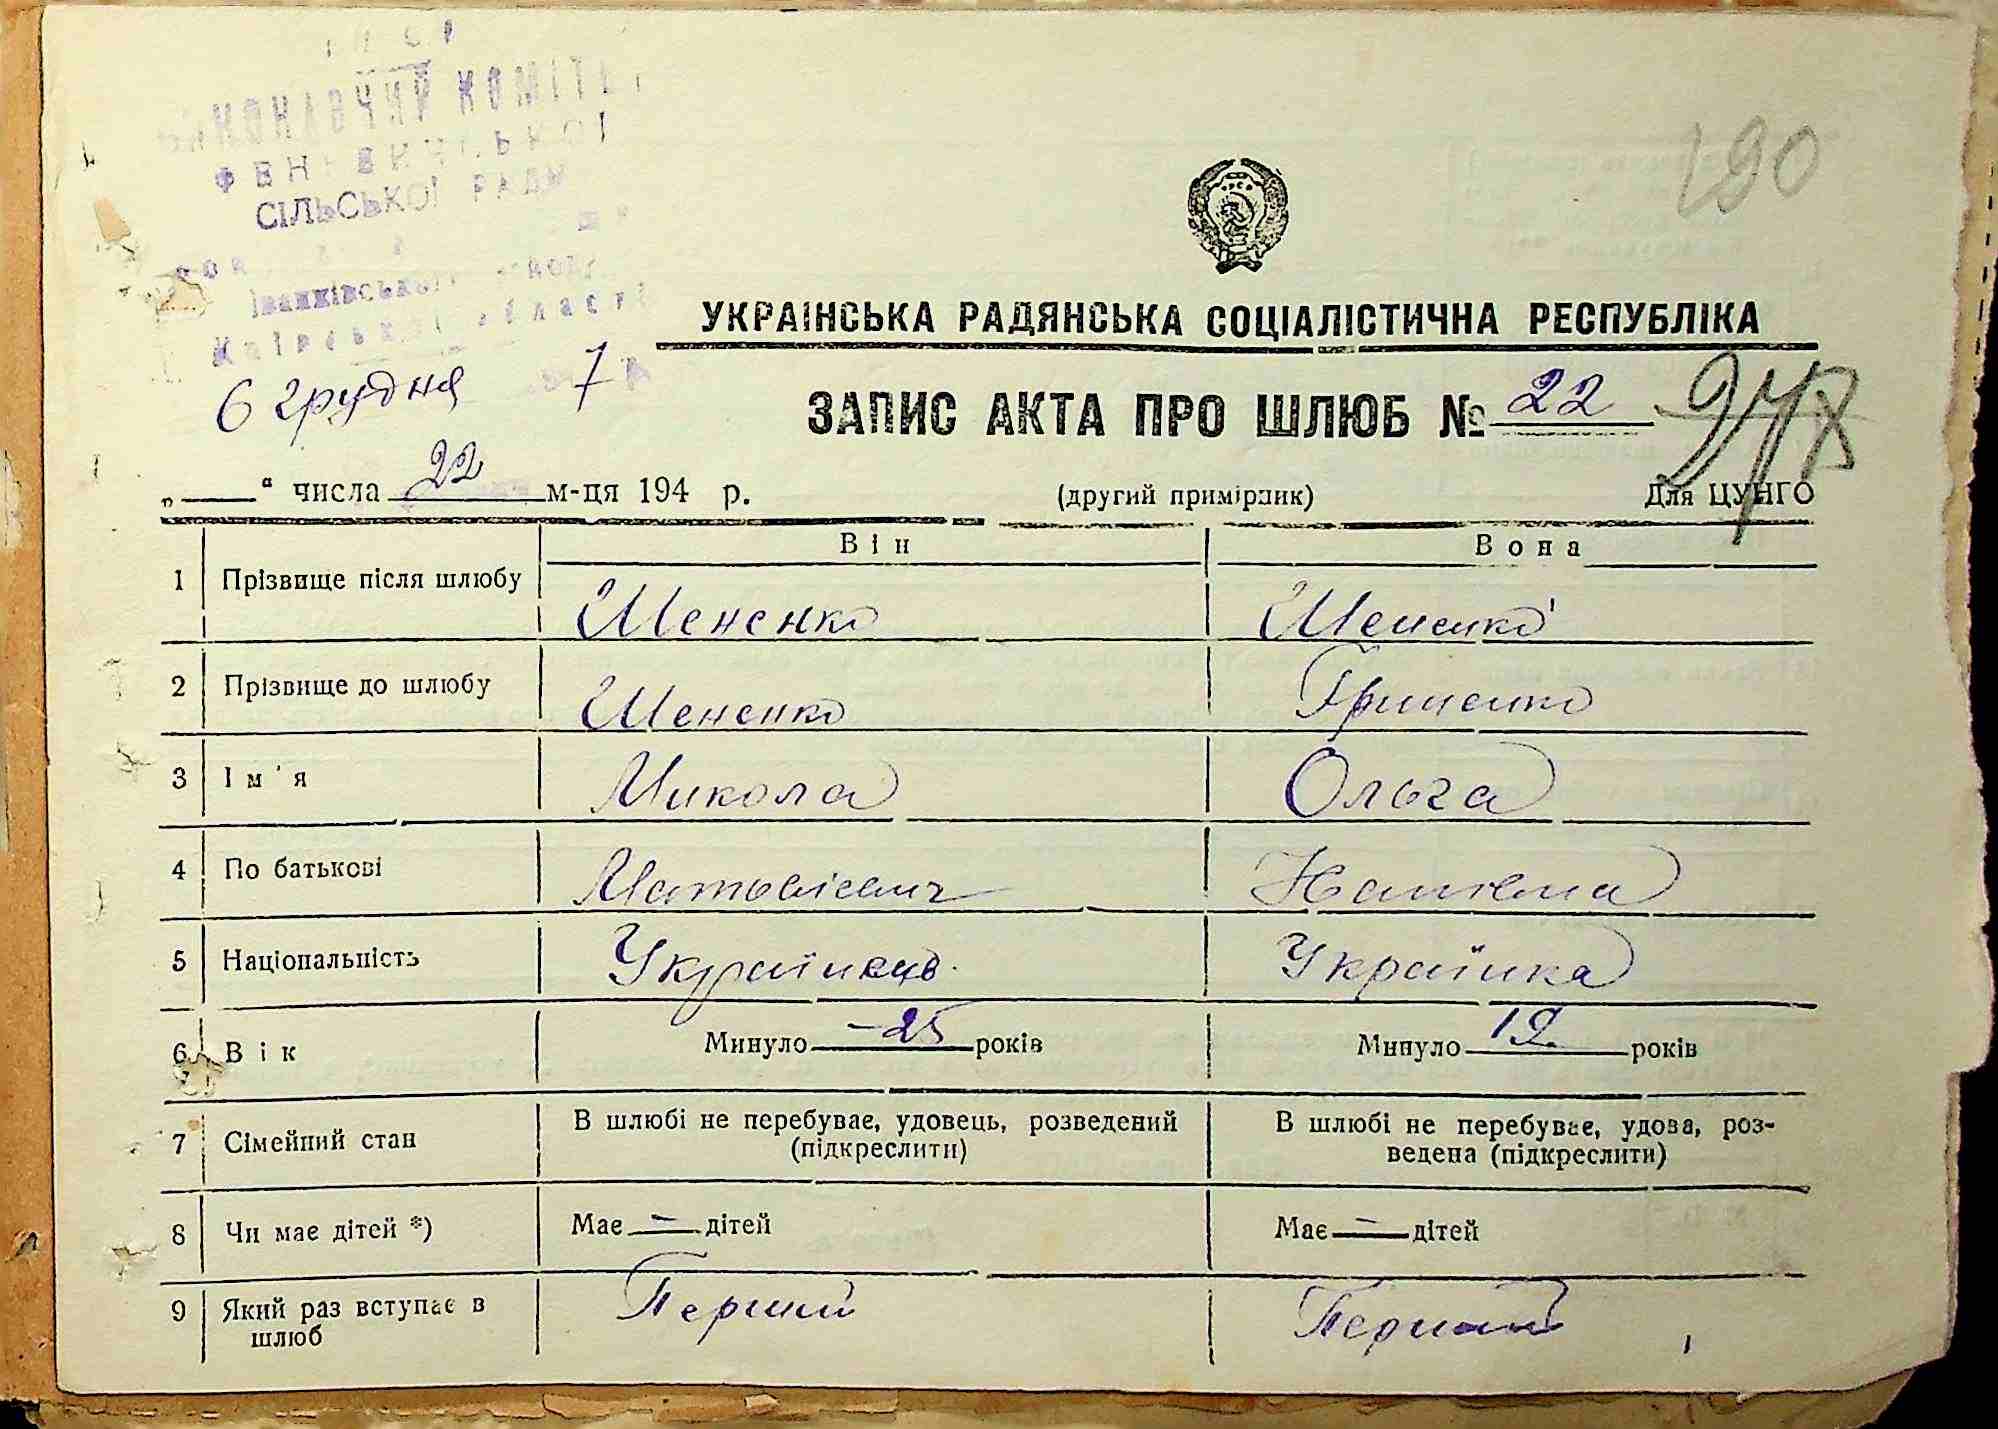 КОМІТЕТ
СІЛЬСЬКОЇ РАДИ
Іванківського
області
190
УКРАЇНСЬКА РАДЯНСЬКА СОЦІАЛІСТИЧНА РЕСПУБЛІКА
6 грудня 7
ЗАПИС АКТА ПРО ШЛЮБ № 22
„ “ числа 22 м-ця 194 р. (другий примірник) Для ЦУНГО
Він Вона
1 Прізвище після шлюбу Шененко Шененко
2 Прізвище до шлюбу Шененко Гриненко
3 Ім'я Микола Ольга
4 По батькові Матвієвич
5 Національність Українець Українка
6 Вік Минуло 25 років Минуло 19 років
7 Сімейний стан В шлюбі не перебуває, удовець, розведений В шлюбі не перебуває, удова, роз-
(підкреслити) ведена (підкреслити)
8 Чи має дітей *) Має — дітей Має — дітей
9 Який раз вступає в Перший Перший
шлюб